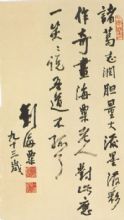 諸葛志潤膽量大潑彩
作奇畫海粟老人對此意
一笑之說吾道不孤了
劉海粟
九十三歲